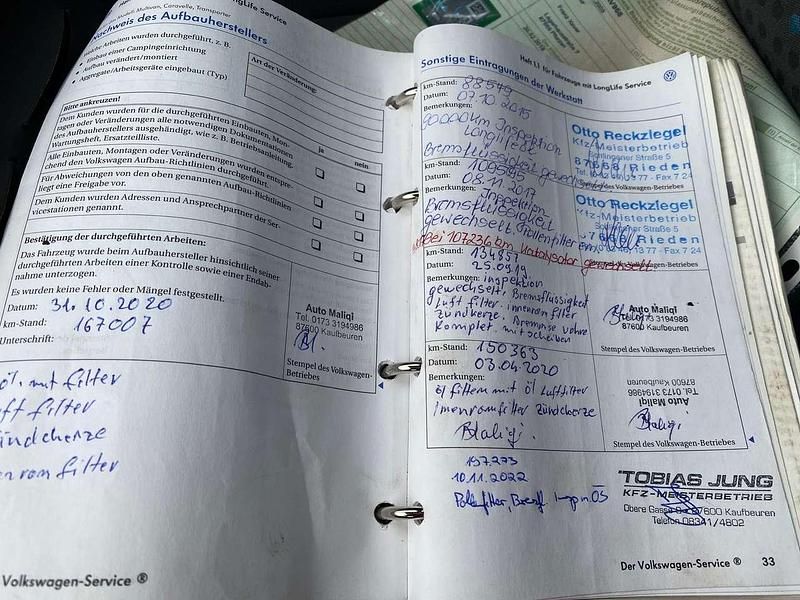 LongLife Service
Modell: Multivan, Caravelle, Transporter
Nachweis des Aufbauherstellers
Welche Arbeiten wurden durchgeführt, z. B.
• Einbau einer Campingeinrichtung
• Aufbau verändert/montiert
• Aggregate/Arbeitsgeräte eingebaut (Typ)
Art der Veränderung:
Bitte ankreuzen!
ja
nein
Dem Kunden wurden für die durchgeführten Einbauten, Mon-
tagen oder Veränderungen alle notwendigen Dokumentationen
des Aufbauherstellers ausgehändigt, wie z. B. Betriebsanleitung,
Wartungsheft, Ersatzteilliste.
Alle Einbauten, Montagen oder Veränderungen wurden entspre-
chend den Volkswagen Aufbau-Richtlinien durchgeführt.
Für Abweichungen von den oben genannten Aufbau-Richtlinien
liegt eine Freigabe vor.
Dem Kunden wurden Adressen und Ansprechpartner der Ser-
vicestationen genannt.
Bestätigung der durchgeführten Arbeiten:
Das Fahrzeug wurde beim Aufbauhersteller hinsichtlich seiner
durchgeführten Arbeiten einer Kontrolle sowie einer Endab-
nahme unterzogen.
Es wurden keine Fehler oder Mängel festgestellt.
Datum: 31.10.2020
km-Stand: 167007
Unterschrift:
Auto Maliqi
Tel. 0173 3194986
87600 Kaufbeuren
Stempel des Volkswagen-
Betriebes
öl. mit filter
filter
zündcherze
filter
Volkswagen-Service ®
Heft 1.1 für Fahrzeuge mit LongLife Service
Sonstige Eintragungen der Werkstatt
km-Stand: 88579
Datum: 07.10.2015
Bemerkungen:
90000km Inspektion
Longlife Öl
Bremsflüssigkeit gewechselt
Otto Reckziegel
Kfz-Meisterbetrieb
Schlingener Straße 5
87668 Rieden
Stempel des Volkswagen-Betriebes
km-Stand: 109595
Datum: 08.11.2017
Bemerkungen: Inspektion
Bremsflüssigkeit
gewechselt, Pollenfilter ern.
Otto Reckziegel
Kfz-Meisterbetrieb
Schlingener Straße 5
87668 Rieden
Stempel des Volkswagen-Betriebes
Bei 107236 km Katalysator gewechselt
km-Stand: 134857
Datum: 25.05.19
Bemerkungen: inspektion
gewechselt. Bremsflüssigkeit
Luft filter. inenram filter
zündkerze. Bremnse vohre
Komplet. mit scheiben
Auto Maliqi
Tel. 0173 3194986
87600 Kaufbeuren
Stempel des Volkswagen-Betriebes
km-Stand: 150363
Datum: 03.04.2020
Bemerkungen:
öl filtern mit öl Luftfilter
imenramfilter zündcherze
Auto Maliqi
Tel. 0173 3194986
87600 Kaufbeuren
Stempel des Volkswagen-Betriebes
197.273
10.11.2022
Pollenfilter, Bremsfl.
TOBIAS JUNG
KFZ-MEISTERBETRIEB
Obere Gasse 87600 Kaufbeuren
Telefon 08341/4802
Der Volkswagen-Service ® 33